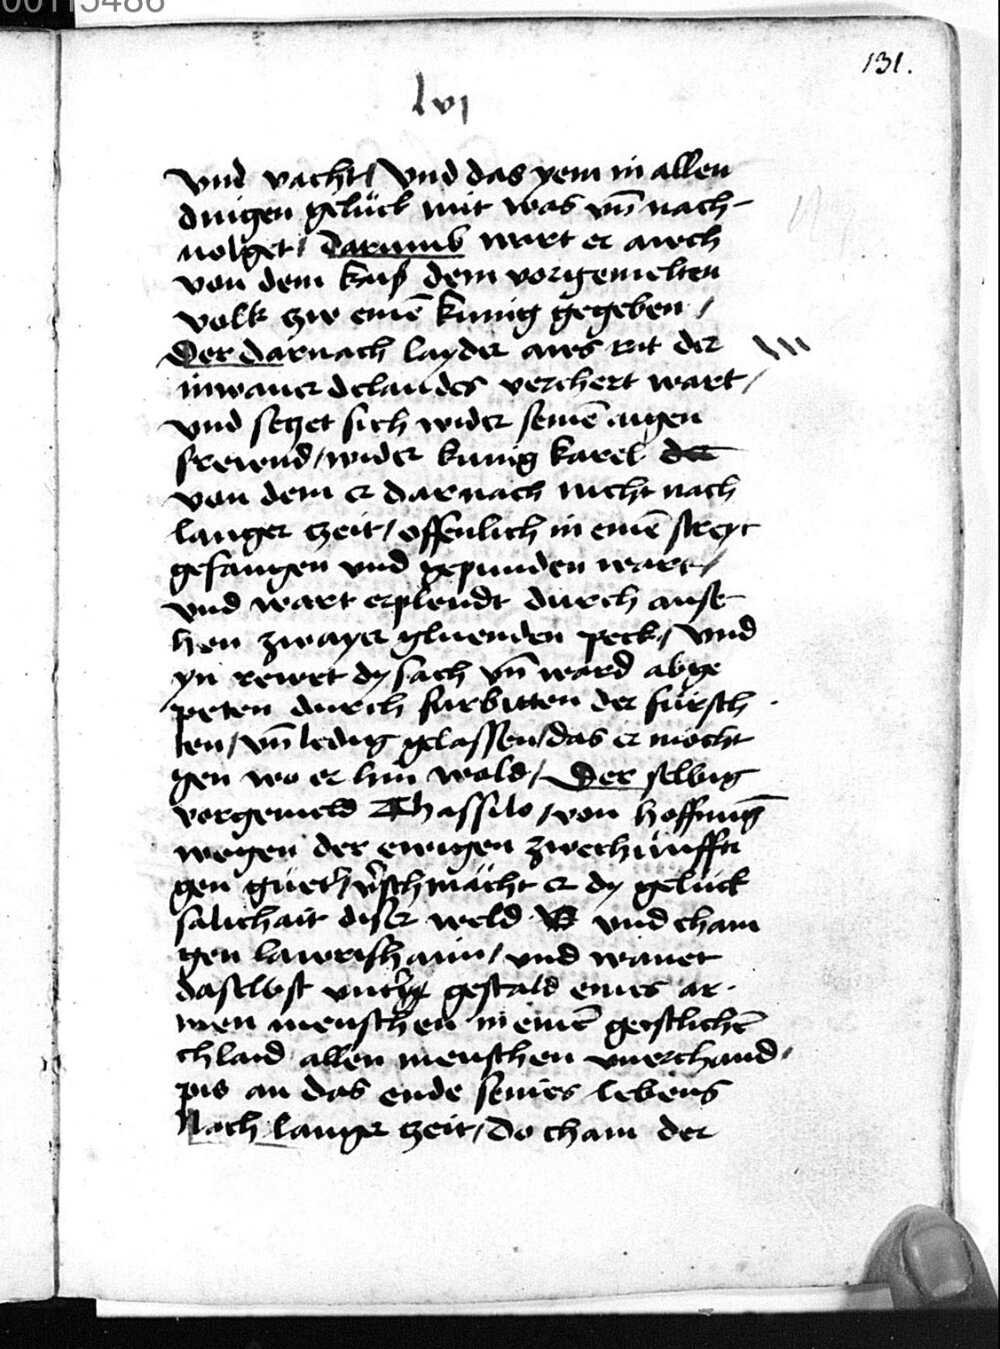 00115486
131.
lvi
vnd vacht / Vnd das yem in allen
dingen gelück mit was vn̄ nach-
uolget / darumb wart er auch
von dem kaiß dem vorgemelten
volk zw einē kunig gegeben /
Der darnach layder aws rat der
inwaner delandes verchert wart /
vnd setzet sich wider seinē aigen
frewnd / wider kunig karel der
von dem er darnach nicht nach
langer zeit / offenlich in einē streyt
gefangen vnd gepunden wart /
vnd wart erplendt durch anse
hen zwayer gluenden peck / Vnd
yn rewet dy sach vn̄ ward abge
peten durch furbitten der fürsch
ten / vn̄ ledig gelassen / das er möcht
gen wo er hin wold / Der selbig
vorgemeld Thassilo / von hoffnung
wegen der ewigen zwechünffti
gen güeth / v̄schmächt er dy gelück
salichait diser weld vnd cham
gen lawrishaim / vnd wanet
daselbst vnter gestald eines ar-
men menschen in einē geistlichē
chlaid allen menschen vnerchand /
pis an das ende seines lebens
Nach langer zeit / do cham der